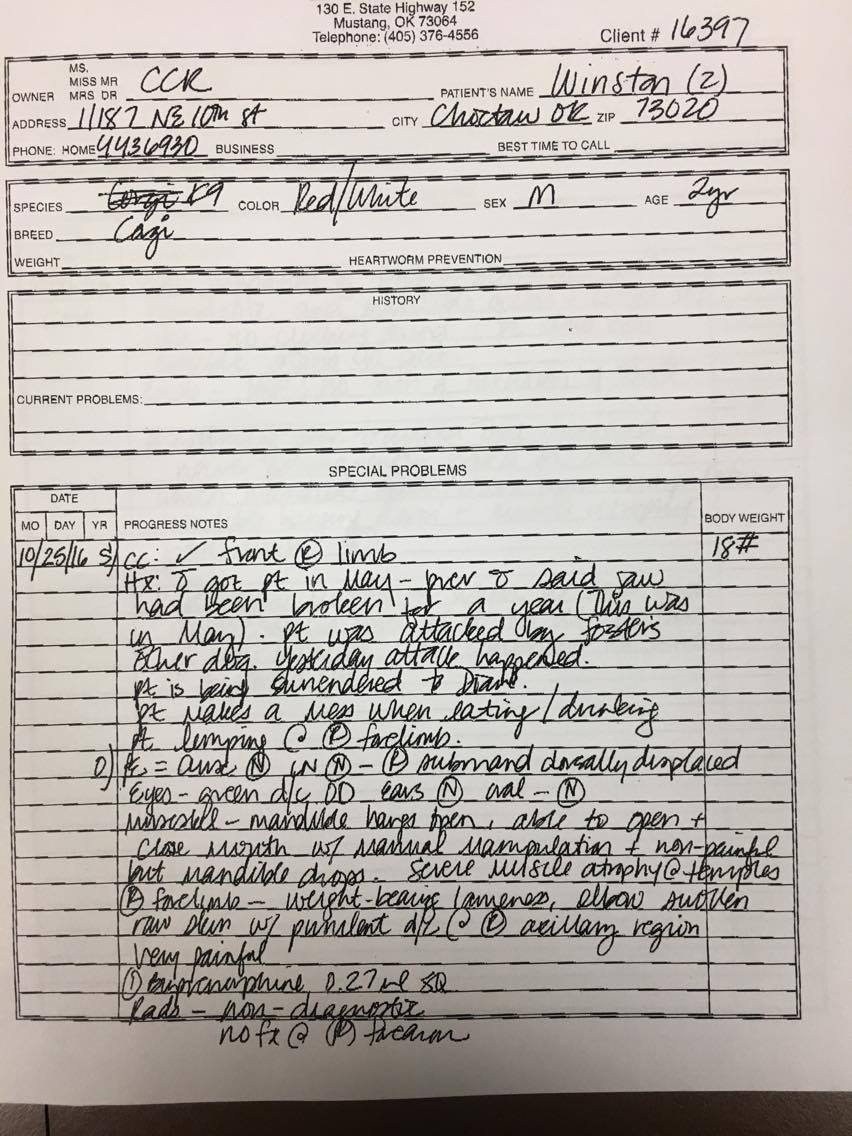 130 E. State Highway 152
Mustang, OK 73064
Telephone: (405) 376-4556
Client # 16397
MS.
MISS MR
OWNER MRS DR CCR PATIENT'S NAME Winston (2)
ADDRESS 11187 NE 10th st CITY Choctaw OK ZIP 73020
PHONE: HOME 4436930 BUSINESS BEST TIME TO CALL
SPECIES K9 COLOR Red/White SEX M AGE 2yr
BREED
WEIGHT HEARTWORM PREVENTION
HISTORY
CURRENT PROBLEMS:
SPECIAL PROBLEMS
DATE
MO DAY YR PROGRESS NOTES BODY WEIGHT
10/25/16 S) CC: ✓ front Ⓡ limb 18#
Hx: got pt in May - prev said jaw
had been broken for a year (This was
in May). Pt was attacked by fosters
other dog. Yesterday attack happened.
Pt is being surrendered to Diane.
Pt makes a mess when eating/drinking
Pt limping @ Ⓡ forelimb.
O) PE = Ⓝ LN Ⓝ - Ⓡ submand dorsally displaced
Eyes - green d/c OD ears Ⓝ oral - Ⓝ
- mandible hangs open, able to open +
close mouth w/ manual manipulation + non-painful
but mandible drops. Severe muscle atrophy @ temples
Ⓡ forelimb - weight-bearing lameness, elbow swollen
raw skin w/ purulent d/c @ Ⓡ axillary region
very painful
① Buprenorphine 0.27ml SQ
Rads - non-diagnostic
no fx @ Ⓡ forearm